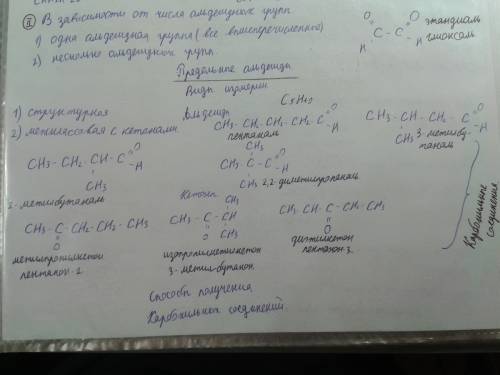 II В зависимости от числа альдегидных групп
1) одна альдегидная группа (все вышеперечисленное)
2) несколько альдегидных групп
O O
C – C
H H
этандиаль
глиоксаль
Предельные альдегиды
Виды изомерии
1) структурная
2) межклассовая с кетонами.
Альдегиды
CH3-CH2-CH2-CH2-C O H
пентаналь
CH3-CH-CH2-C O H
CH3
3-метилбу-
таналь
CH3-CH2-CH-C O H
CH3
2-метилбутаналь
CH3
CH3-C-C O H
CH3
2,2-диметилпропаналь
Кетоны
CH3-C-CH2-CH2-CH3
O
метилпропилкетон
пентанон-2
CH3
CH3-C-CH
O CH3
изопропилметилкетон
3-метилбутанон
CH3-CH2-C-CH2-CH3
O
диэтилкетон
пентанон-3.
Карбонильные
соединения
Способы получения
Карбонильных соединений.